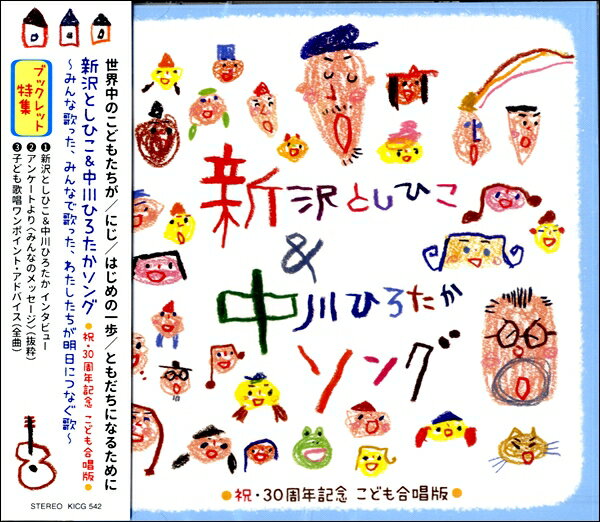 世界中のこどもたちが/にじ/はじめの一歩/ともだちになるために
新沢としひこ&中川ひろたかソング
●祝・30周年記念 こども合唱版●
～みんな歌った、みんなで歌った、わたしたちが明日につなぐ歌～
ブックレット
特集
❶新沢としひこ&中川ひろたか インタビュー
❷アンケートより〈みんなのメッセージ〉(抜粋)
❸子ども歌唱ワンポイント・アドバイス(全曲)
STEREO KICG 542
新沢としひこ
&
中川ひろたか
ソング
●祝・30周年記念 こども合唱版●